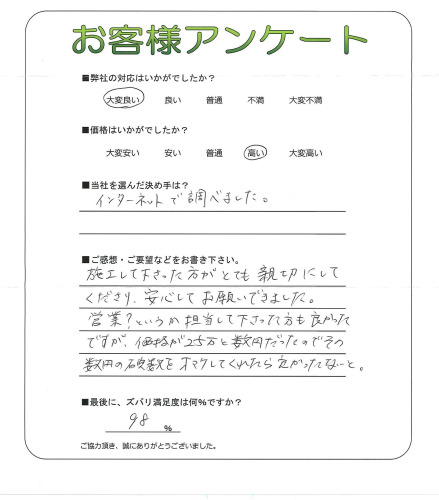 お客様アンケート
■弊社の対応はいかがでしたか？
大変良い 良い 普通 不満 大変不満
■価格はいかがでしたか？
大変安い 安い 普通 高い 大変高い
■当社を選んだ決め手は？
インターネットで調べました。
■ご感想・ご要望などをお書き下さい。
施工して下さった方がとても親切にして
くださり、安心してお願いできました。
営業？というか担当して下さった方も良かった
ですが、価格が25万と数円だったのでその
数円の端数をオマケしてくれたら良かったなぁと。
■最後に、ズバリ満足度は何%ですか？
98 %
ご協力頂き、誠にありがとうございました。